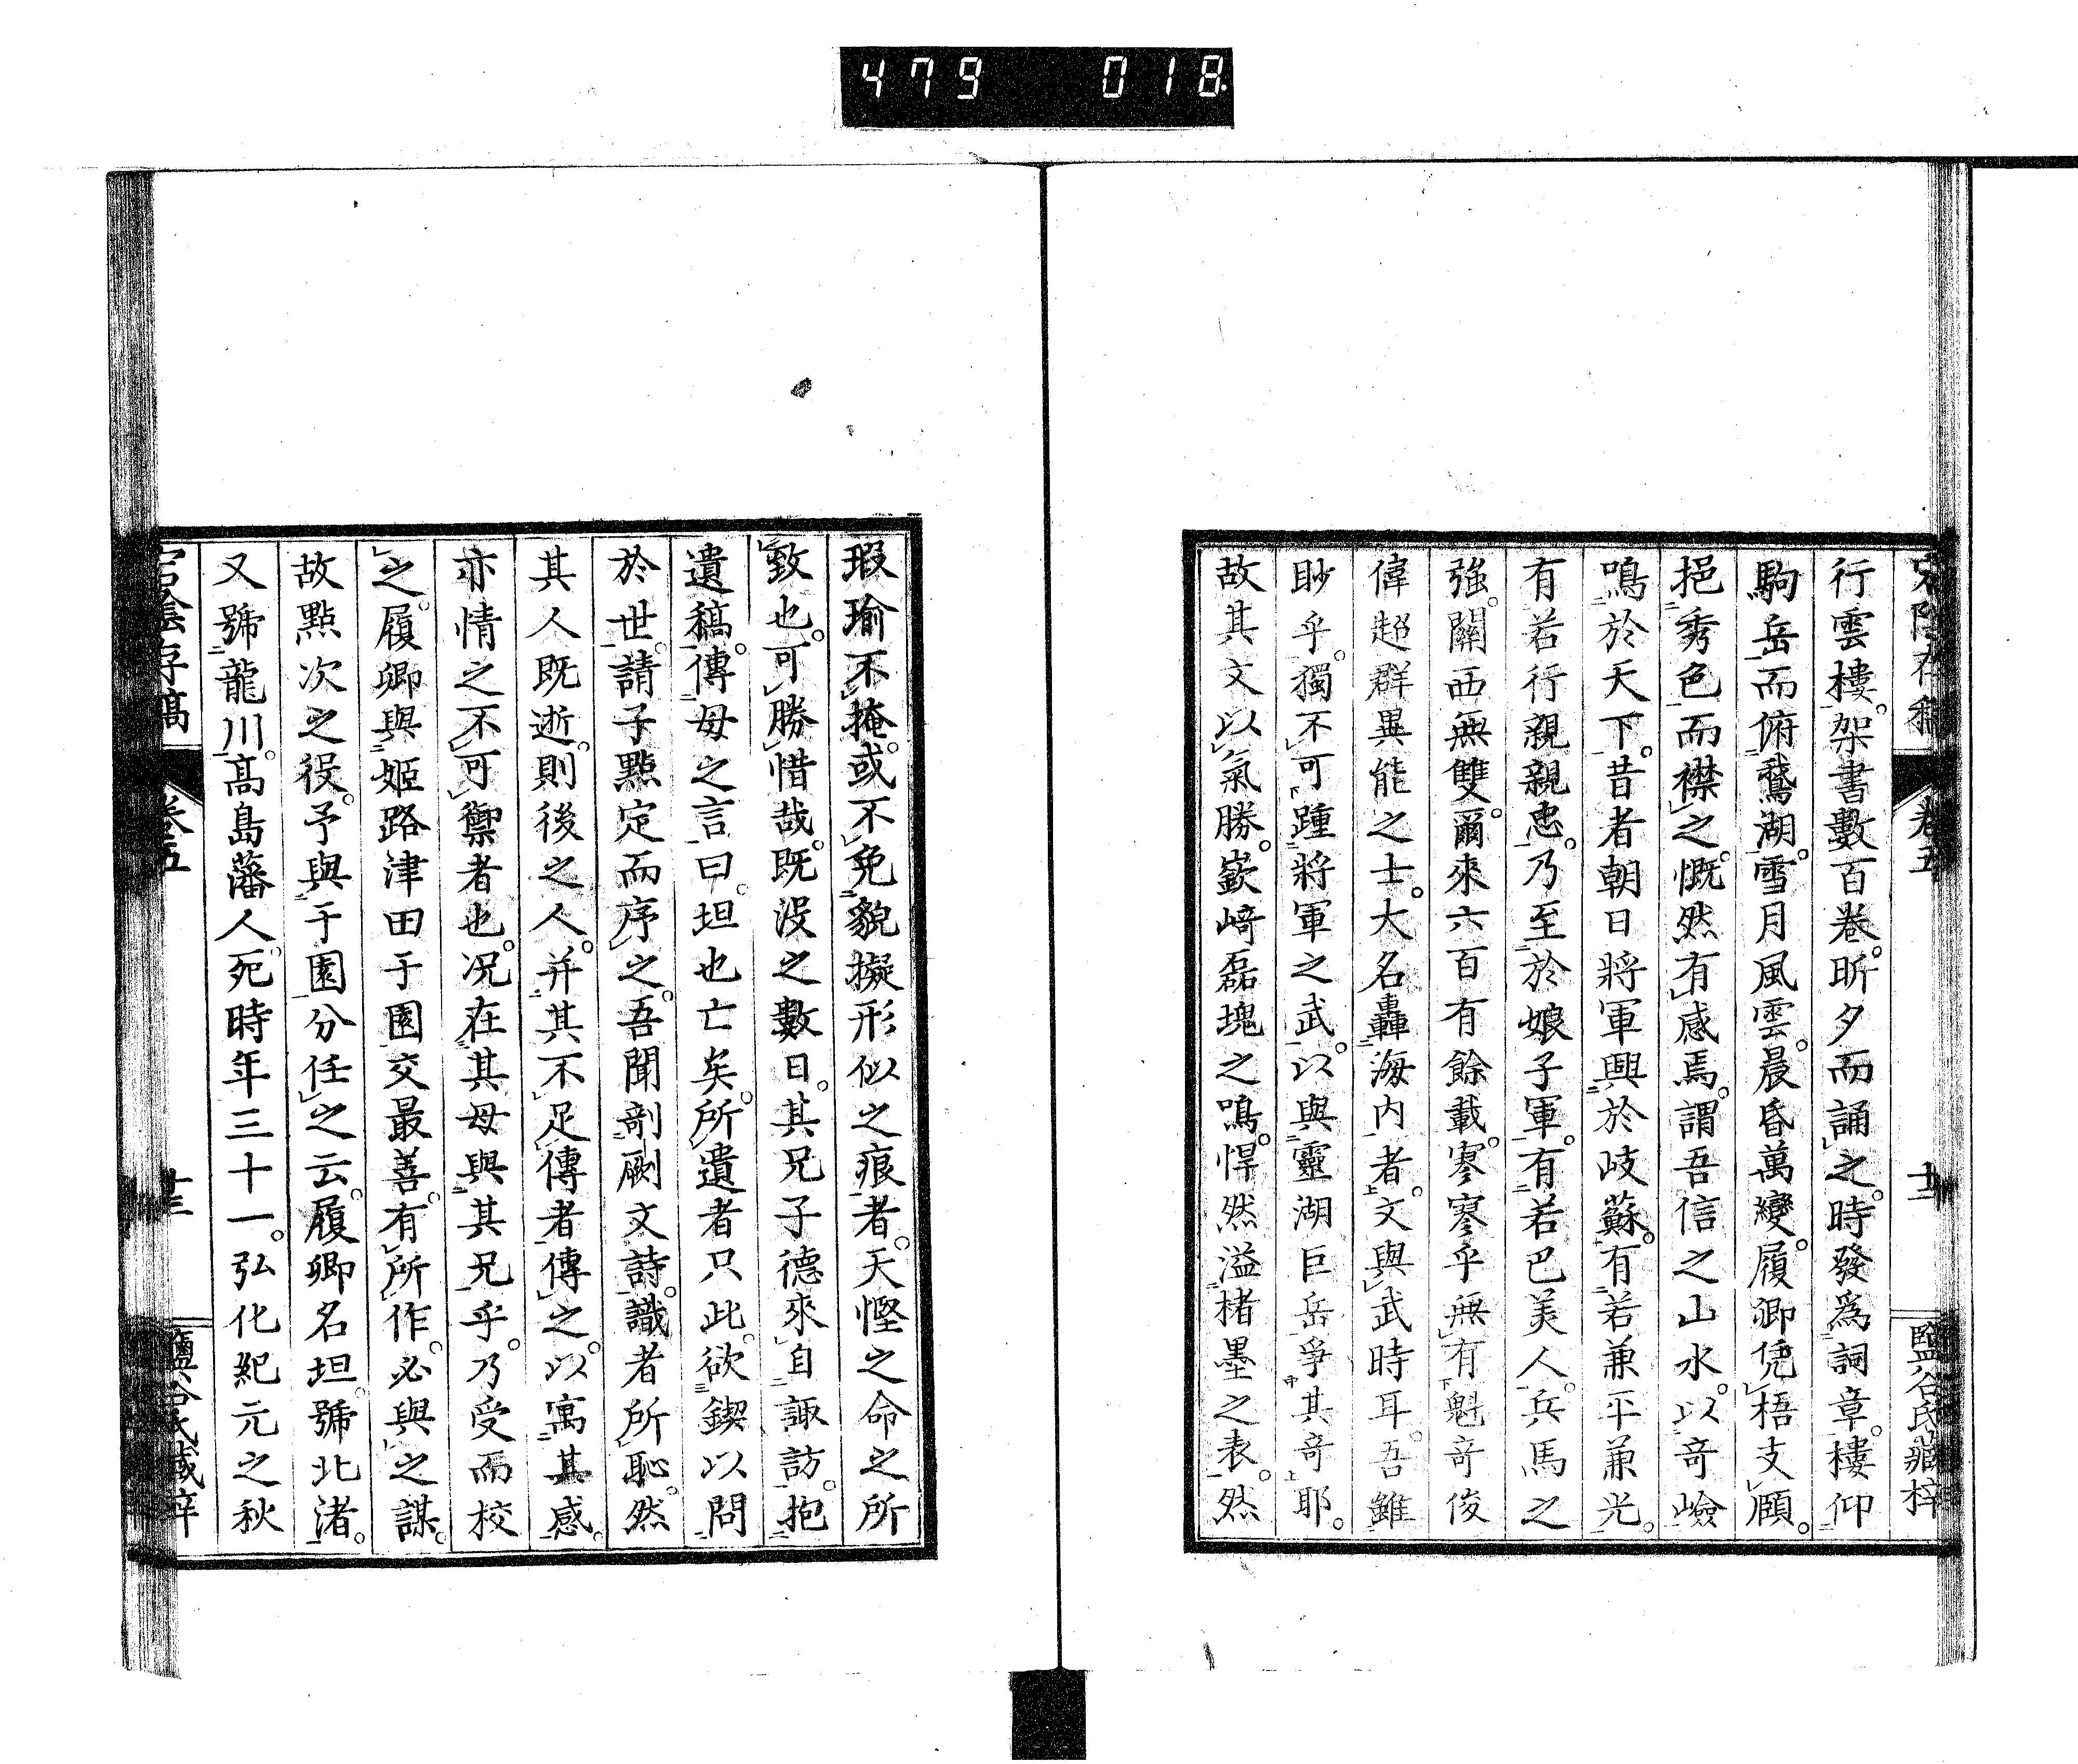 479 018
宕陰存稿 卷五 十二 鹽谷氏藏梓
行雲樓。架書數百卷。昕夕而誦之。時發爲詞章。樓仰
駒岳而俯鵞湖。雪月風雲。晨昏萬變。履卿凭梧支頤。
挹秀色而襟之。慨然有感焉。謂吾信之山水。以奇嶮
鳴於天下。昔者朝日將軍興於岐蘇。有若兼平兼光。
有若行親親忠。乃至於娘子軍。有若巴美人。兵馬之
強。關西無雙。爾來六百有餘載。寥寥乎無有魁奇俊
偉超群異能之士。大名轟海内者。文與武時耳。吾雖
眇乎。獨不可踵將軍之武。以與靈湖巨岳爭其奇耶。
故其文以氣勝。嶔﨑磊塊之鳴。悍然溢楮墨之表。然
瑕瑜不掩。或不免貌擬形似之痕者。天慳之命之所
致也。可勝惜哉。既沒之數日。其兄子德來自諏訪。抱
遺稿。傳母之言曰。坦也亡矣。所遺者只此。欲鍥以問
於世。請子點定而序之。吾聞剞劂文詩。識者所恥。然
其人既逝。則後之人。并其不足傳者傳之。以寓其感。
亦情之不可禦者也。况在其母與其兄乎。乃受而校
之。履卿與姫路津田于園交最善。有所作。必與之謀。
故點次之役。予與于園分任之云。履卿名坦。號北渚。
又號龍川。高島藩人。死時年三十一。弘化紀元之秋
宕陰存稿 卷五 十三 鹽谷氏藏梓